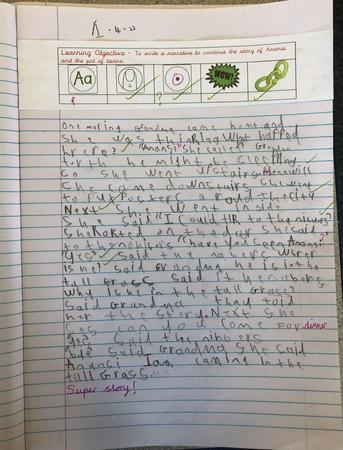 1.4.22
Learning Objective - To write a narrative to continue the story of Anansi
and the pot of beans.
Aa
WOW!
One moring Grandma came home and
She was thinking what happed
"Anansi" She called
forth he might be sleeping
so she went upstairs. Meanwill
She came downstairs she went
to put posters around the city
Next she went inside
She said "I could
She on the she said
to the "have you seen Anansi
yes" said the
is he? said Grandma he is in the
tall grass said
what is he in the tall grass?
said Grandma they told
her the story. Next she
ses can you come for dinner
"yes" said the
said Grandma she said
Anansi I am caming in the
tall Grass
Super story!